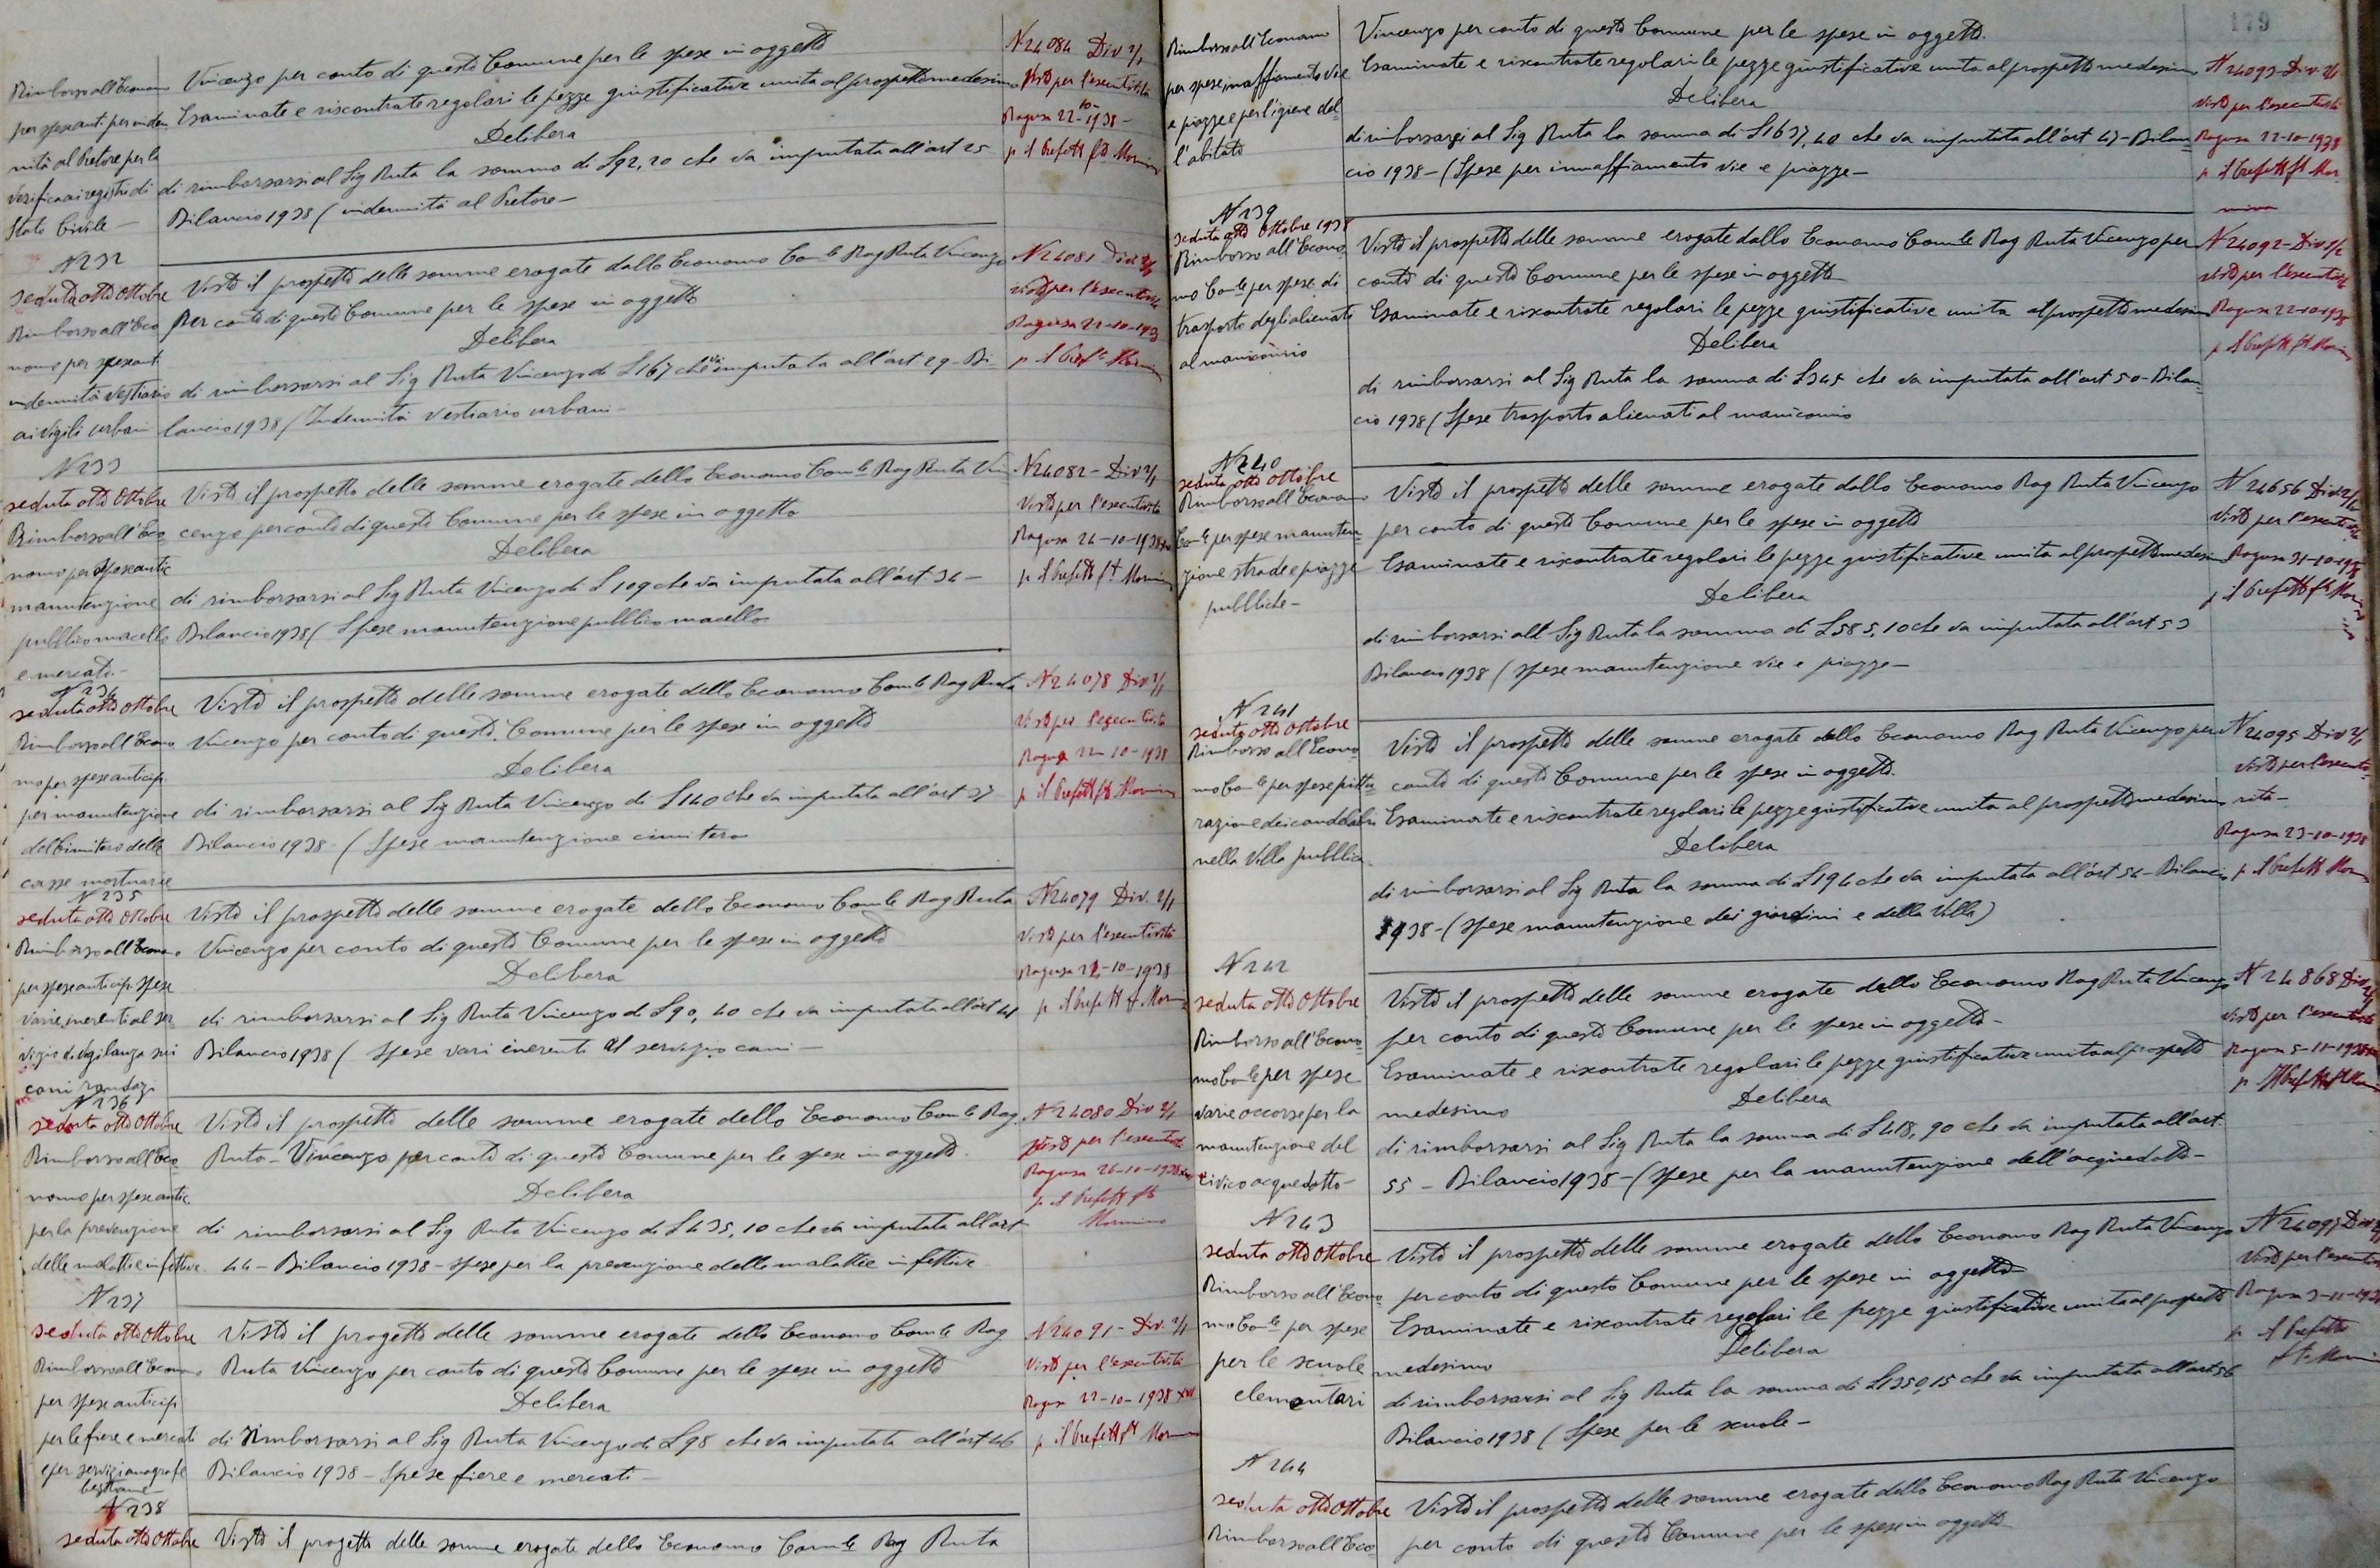 Rimborso all'Econom
per spese anti. per inden
nità al Pretore per la
verifica ai registri di
Stato Civile —
Vincenzo per conto di questo Comune per le spese in oggetto
Esaminate e riscontrate regolari le pezze giustificative unita al prospetto medesimo
Delibera
di rimborsarsi al Sig Ruta la somma di L 92,20 che va imputata all'art 25
Bilancio 1938 ( indennità al Pretore —
N 24084 Div 2/1
Visto per l'esecutività
Ragusa 22-10-1938 —
p il Prefetto ft Mormino
N 232
seduta otto Ottobre
Rimborso all'Eco
nomo per spese ant.
indennità vestiario
ai vigili urbani
Visto il prospetto delle somme erogate dallo Economo Com.le Rag Ruta Vincenzo
per conto di questo Comune per le spese in oggetto
Delibera
di rimborsarsi al Sig Ruta Vincenzo di L 167 che va imputata all'art. 29 - Bi-
lancio 1938 / Indennità vestiario urbani —
N 24081 Div 2/1
visto per l'esecutività
Ragusa 22-10-1938
p il Pref.to Mormino
N 233
seduta otto Ottobre
Rimborso all'Eco
nomo per spese antic
manutenzione
pubblico macello
e mercati —
Visto il prospetto delle somme erogate dello Economo Com.le Rag Ruta Vin
cenzo per conto di questo Comune per le spese in oggetto
Delibera
di rimborsarsi al Sig Ruta Vincenzo di L 109 che va imputata all'art. 34 —
Bilancio 1938 ( Spese manutenzione pubblico macello.
N 24082 - Div 2/1
Visto per l'esecutività
Ragusa 24-10-1938
p il Prefetto ft Mormino
N 234
seduta otto Ottobre
Rimborso all'Econo
mo per spese anticip.
per manutenzione
del Cimitero delle
casse mortuarie
Visto il prospetto delle somme erogate dello Economo Com.le Rag Ruta
Vincenzo per conto di questo Comune per le spese in oggetto
Delibera
di rimborsarsi al Sig Ruta Vincenzo di L 140 che va imputata all'art 37
Bilancio 1938 - ( Spese manutenzione cimitero
N 24078 Div 2/1
Visto per l'esecutività
Ragusa 22-10-1938
p il Prefetto ft Mormino
N 235
seduta otto Ottobre
Rimborso all'Econo
per spese anticip. spese
varie inerenti al ser
vizio di vigilanza sui
cani randagi
Visto il prospetto delle somme erogate dello Economo Com.le Rag Ruta
Vincenzo per conto di questo Comune per le spese in oggetto
Delibera
di rimborsarsi al Sig Ruta Vincenzo di L 90,40 che va imputata all'art 41
Bilancio 1938 ( Spese vari inerenti al servizio cani —
N 24079 Div. 2/1
Visto per l'esecutività
Ragusa 22-10-1938
p il Prefetto ft Mormino
N 236
seduta otto Ottobre
Rimborso all'Eco
nomo per spese antic
per la prevenzione
delle malattie infettive
Visto il prospetto delle somme erogate dello Economo Com.le Rag.
Ruta - Vincenzo per conto di questo Comune per le spese in oggetto.
Delibera
di rimborsarsi al Sig Ruta Vincenzo di L 435,10 che va imputata all'art
44 - Bilancio 1938 - spese per la prevenzione delle malattie infettive
N 24080 Div 2/1
Visto per l'esecutività
Ragusa 26-10-1938
p il Prefetto ft
Mormino
N 237
seduta otto Ottobre
Rimborso all'Econo
per spese anticip
per le fiere e mercati
e per servizi anagrafe
bestiame
Visto il progetto delle somme erogate dello Economo Com.le Rag
Ruta Vincenzo per conto di questo Comune per le spese in oggetto
Delibera
di Rimborsarsi al Sig Ruta Vincenzo di L 98 che va imputata all'art 46
Bilancio 1938 - Spese fiere e mercati —
N 24091 - Div. 2/1
Visto per l'esecutività
Ragusa 22-10-1938 XVI
p il Prefetto ft Mormino
N 238
seduta otto Ottobre
Visto il progetto delle somme erogate dello Economo Com.le Rag Ruta
179
Rimborso all'Economo
per spese innaffiamento vie
e piazze e per l'igiene del
l'abitato
Vincenzo per conto di questo Comune per le spese in oggetto.
Esaminate e riscontrate regolari le pezze giustificative unita al prospetto medesimo
Delibera
di rimborsarsi al Sig Ruta la somma di L 1637,40 che va imputata all'art 47 - Bilan
cio 1938 - ( Spese per innaffiamento vie e piazze —
N 24093 - Div 2/1
visto per l'esecutività
Ragusa 22-10-1938
p il Prefetto ft Mor
mino
N 239
seduta otto Ottobre 1938
Rimborso all'Econo
mo Com.le per spese di
trasporto degli alienati
al manicomio
Visto il prospetto delle somme erogate dallo Economo Com.le Rag Ruta Vincenzo per
conto di questo Comune per le spese in oggetto
Esaminate e riscontrate regolari le pezze giustificative unita al prospetto medesimo
Delibera
di rimborsarsi al Sig Ruta la somma di L 345 che va imputata all'art 50 - Bilan
cio 1938 / Spese trasporto alienati al manicomio
N 24092 - Div 2/1
visto per l'esecutività
Ragusa 22-10-1938
p il Prefetto ft Mormino
N 240
seduta otto Ottobre
Rimborso all'Econom
Com.le per spese manuten
zione strade e piazze
pubbliche —
Visto il prospetto delle somme erogate dallo Economo Rag Ruta Vincenzo
per conto di questo Comune per le spese in oggetto
Esaminate e riscontrate regolari le pezze giustificative unita al prospetto medesimo
Delibera
di rimborsarsi all Sig Ruta la somma di L 585,10 che va imputata all'art 53
Bilancio 1938 ( spese manutenzione vie e piazze —
N 24656 Div 2/1
Visto per l'esecutività
Ragusa 31-10-1938
p il Prefetto ft Mormino
N 241
seduta otto Ottobre
Rimborso all'Econo
mo Com.le per spese pittu
razione dei candelabri
nella Villa pubblica.
Visto il prospetto delle somme erogate dello Economo Rag Ruta Vincenzo per
conto di questo Comune per le spese in oggetto.
Esaminate e riscontrate regolari le pezze giustificative unita al prospetto medesimo
Delibera
di rimborsarsi al Sig Ruta la somma di L 194 che va imputata all'art 54 - Bilancio
1938 - ( spese manutenzione dei giardini e della Villa )
N 24095 Div 2/1
visto per l'esecuti-
vità —
Ragusa 23-10-1938
p il Prefetto Mormino
N 242
seduta otto Ottobre
Rimborso all'Econo
mo Com.le per spese
varie occorse per la
manutenzione del
civico acquedotto —
Visto il prospetto delle somme erogate dello Economo Rag Ruta Vincenzo
per conto di questo Comune per le spese in oggetto —
Esaminate e riscontrate regolari le pezze giustificative unita al prospetto
medesimo
Delibera
di rimborsarsi al Sig Ruta la somma di L 418,90 che va imputata all'art.
55 - Bilancio 1938 - ( spese per la manutenzione dell'acquedotto —
N 24868 Div 2/1
visto per l'esecutività
Ragusa 5-11-1938
p il Prefetto ft Mormino
N 243
seduta otto Ottobre
Rimborso all'Econo
mo Com.le per spese
per le scuole
elementari
Visto il prospetto delle somme erogate dello Economo Rag Ruta Vincenzo
per conto di questo Comune per le spese in oggetto
Esaminate e riscontrate regolari le pezze giustificative unita al prospetto
medesimo
Delibera
di rimborsarsi al Sig Ruta la somma di L 1350,15 che va imputata all'art 56
Bilancio 1938 ( Spese per le scuole —
N 24097 Div 2/1
Visto per l'esecutività
Ragusa 3-11-1938
p il Prefetto
ft Mormino
N 244
seduta otto Ottobre
Rimborso all'Eco
Visto il prospetto delle somme erogate dello Economo Rag Ruta Vincenzo
per conto di questo Comune per le spese in oggetto